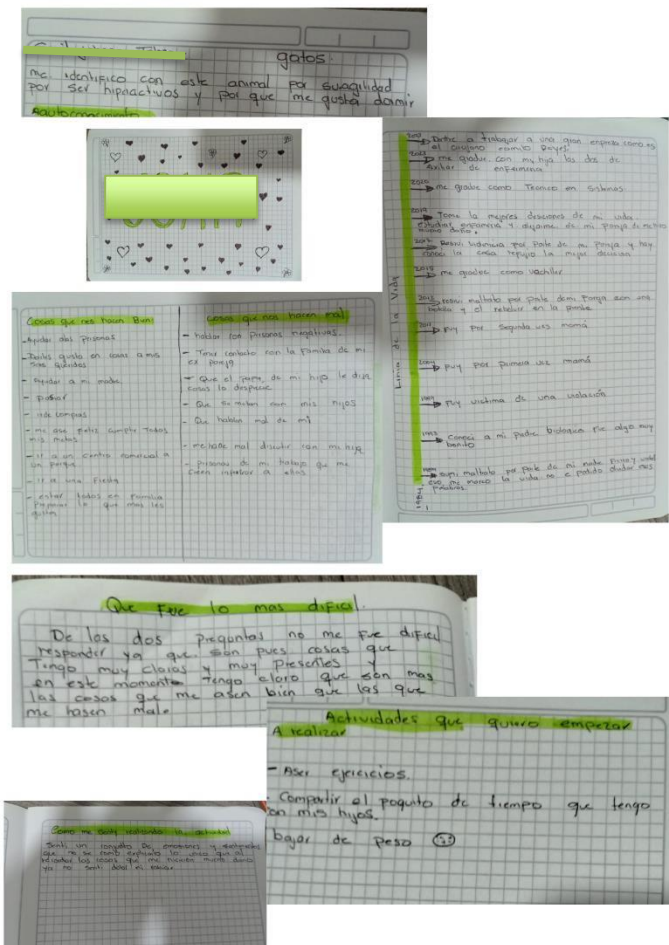 gatos.
me identifico con este animal por suagilidad
por ser hipiactivos y por que me gusta dormir
aautoconocimiento
Entre a trabajar a una gran empresa como es
el
me gradue con mi hija las dos de
auxiliar de enfermeria.
me gradue como Tecnico en Sistemas
2014 Tome la mejores desciones de mi vida
estudiar, y dejarme de mi Pareja
mucho daño.
por Parte de mi Pareja y hay
conoci la casa refujio la mejor decision
me gradue como vachiller
maltrato por parte de mi Pareja con una
botella y el rebolber en la
Fuy por Segunda ves mamá
Fuy por primera ves mamá
Fuy victima de una violación
Conoci a mi padre biologico Fue algo muy
bonito
maltrato por parte de mi madre Fisico y verbal
eso me marco la vida no e podido olvidar
palabras.
Linea de la Vida
Cosas que nos hacen Bien
- Ayudar alas personas
- Darles gusto en cosas a mis
seres queridos
- Ayudar a mi madre
- ir de compras
- me ase feliz cumplir Todas
mis metas
- ir a un centro comercial o
un parque.
- ir a una Fiesta
- estar todos en Familia
Preparar lo que mas les
gusta
Cosas que nos hacen mal
- hablar con personas negativas
- Tener contacto con la Familia de mi
ex pareja
- Que el papa, de mi hija le diga
cosas la desprecie
- Que se meten con mis hijos
- Que hablen mal de mi
- me hace mal discutir con mi hija
- personas de mi trabajo que me
creen inferior a ellos
Que Fue lo mas dificil.
De los dos Preguntas no me Fue dificil
responder ya que son pues cosas que
Tengo muy claras y muy Presentes y
en este momento Tengo claro que son mas
las cosas que me asen bien que las que
me hasen mal.
Actividades que quiero empezar
A realizar
- Aser ejercicios.
- Compartir el poquito de tiempo que tengo
con mis hijos.
bajar de peso
Como me Senti realizando la actividad
Senti un conjunto De emociones y
que no se como explicarlo lo unico que al
recordar las cosas que me hicieron mucho daño
ya no senti dolor ni